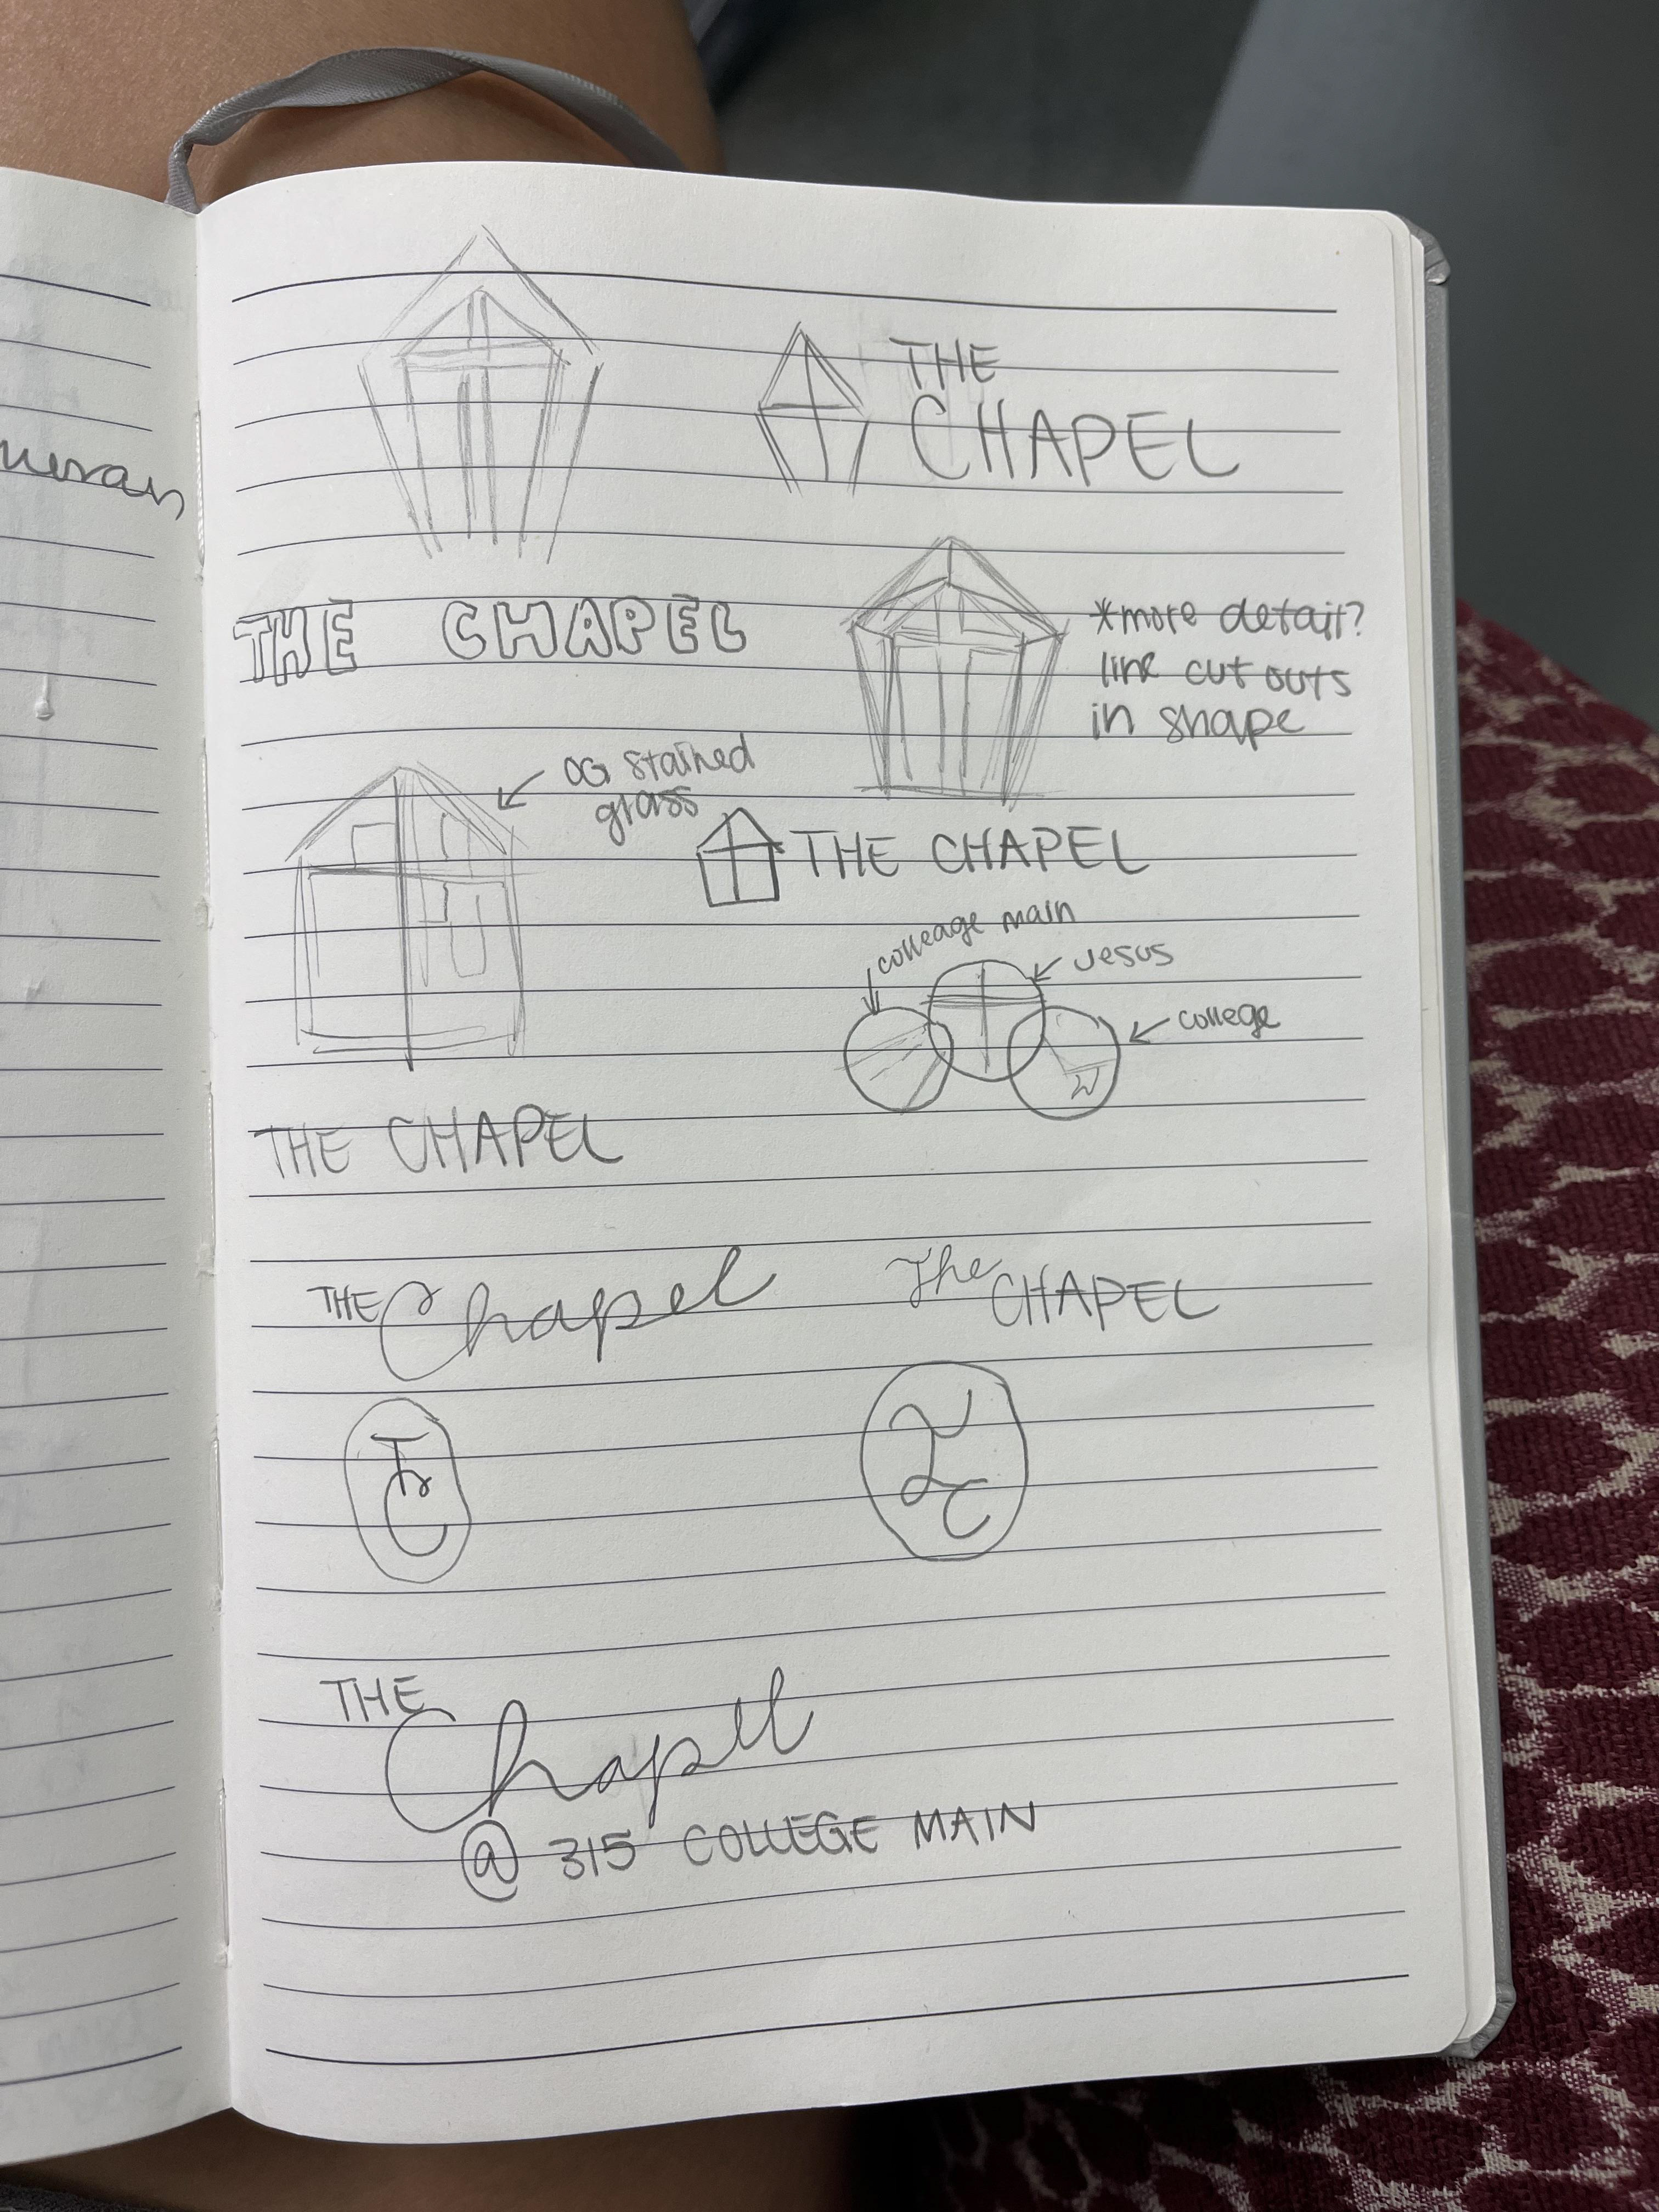 THE
CHAPEL
THE CHAPEL
*more detail?
line cut outs
in shape
OG stained
glass
THE CHAPEL
colleage main
Jesus
college
THE CHAPEL
THE Chapel
The CHAPEL
TC
TC
THE
Chapel
@ 315 COLLEGE MAIN